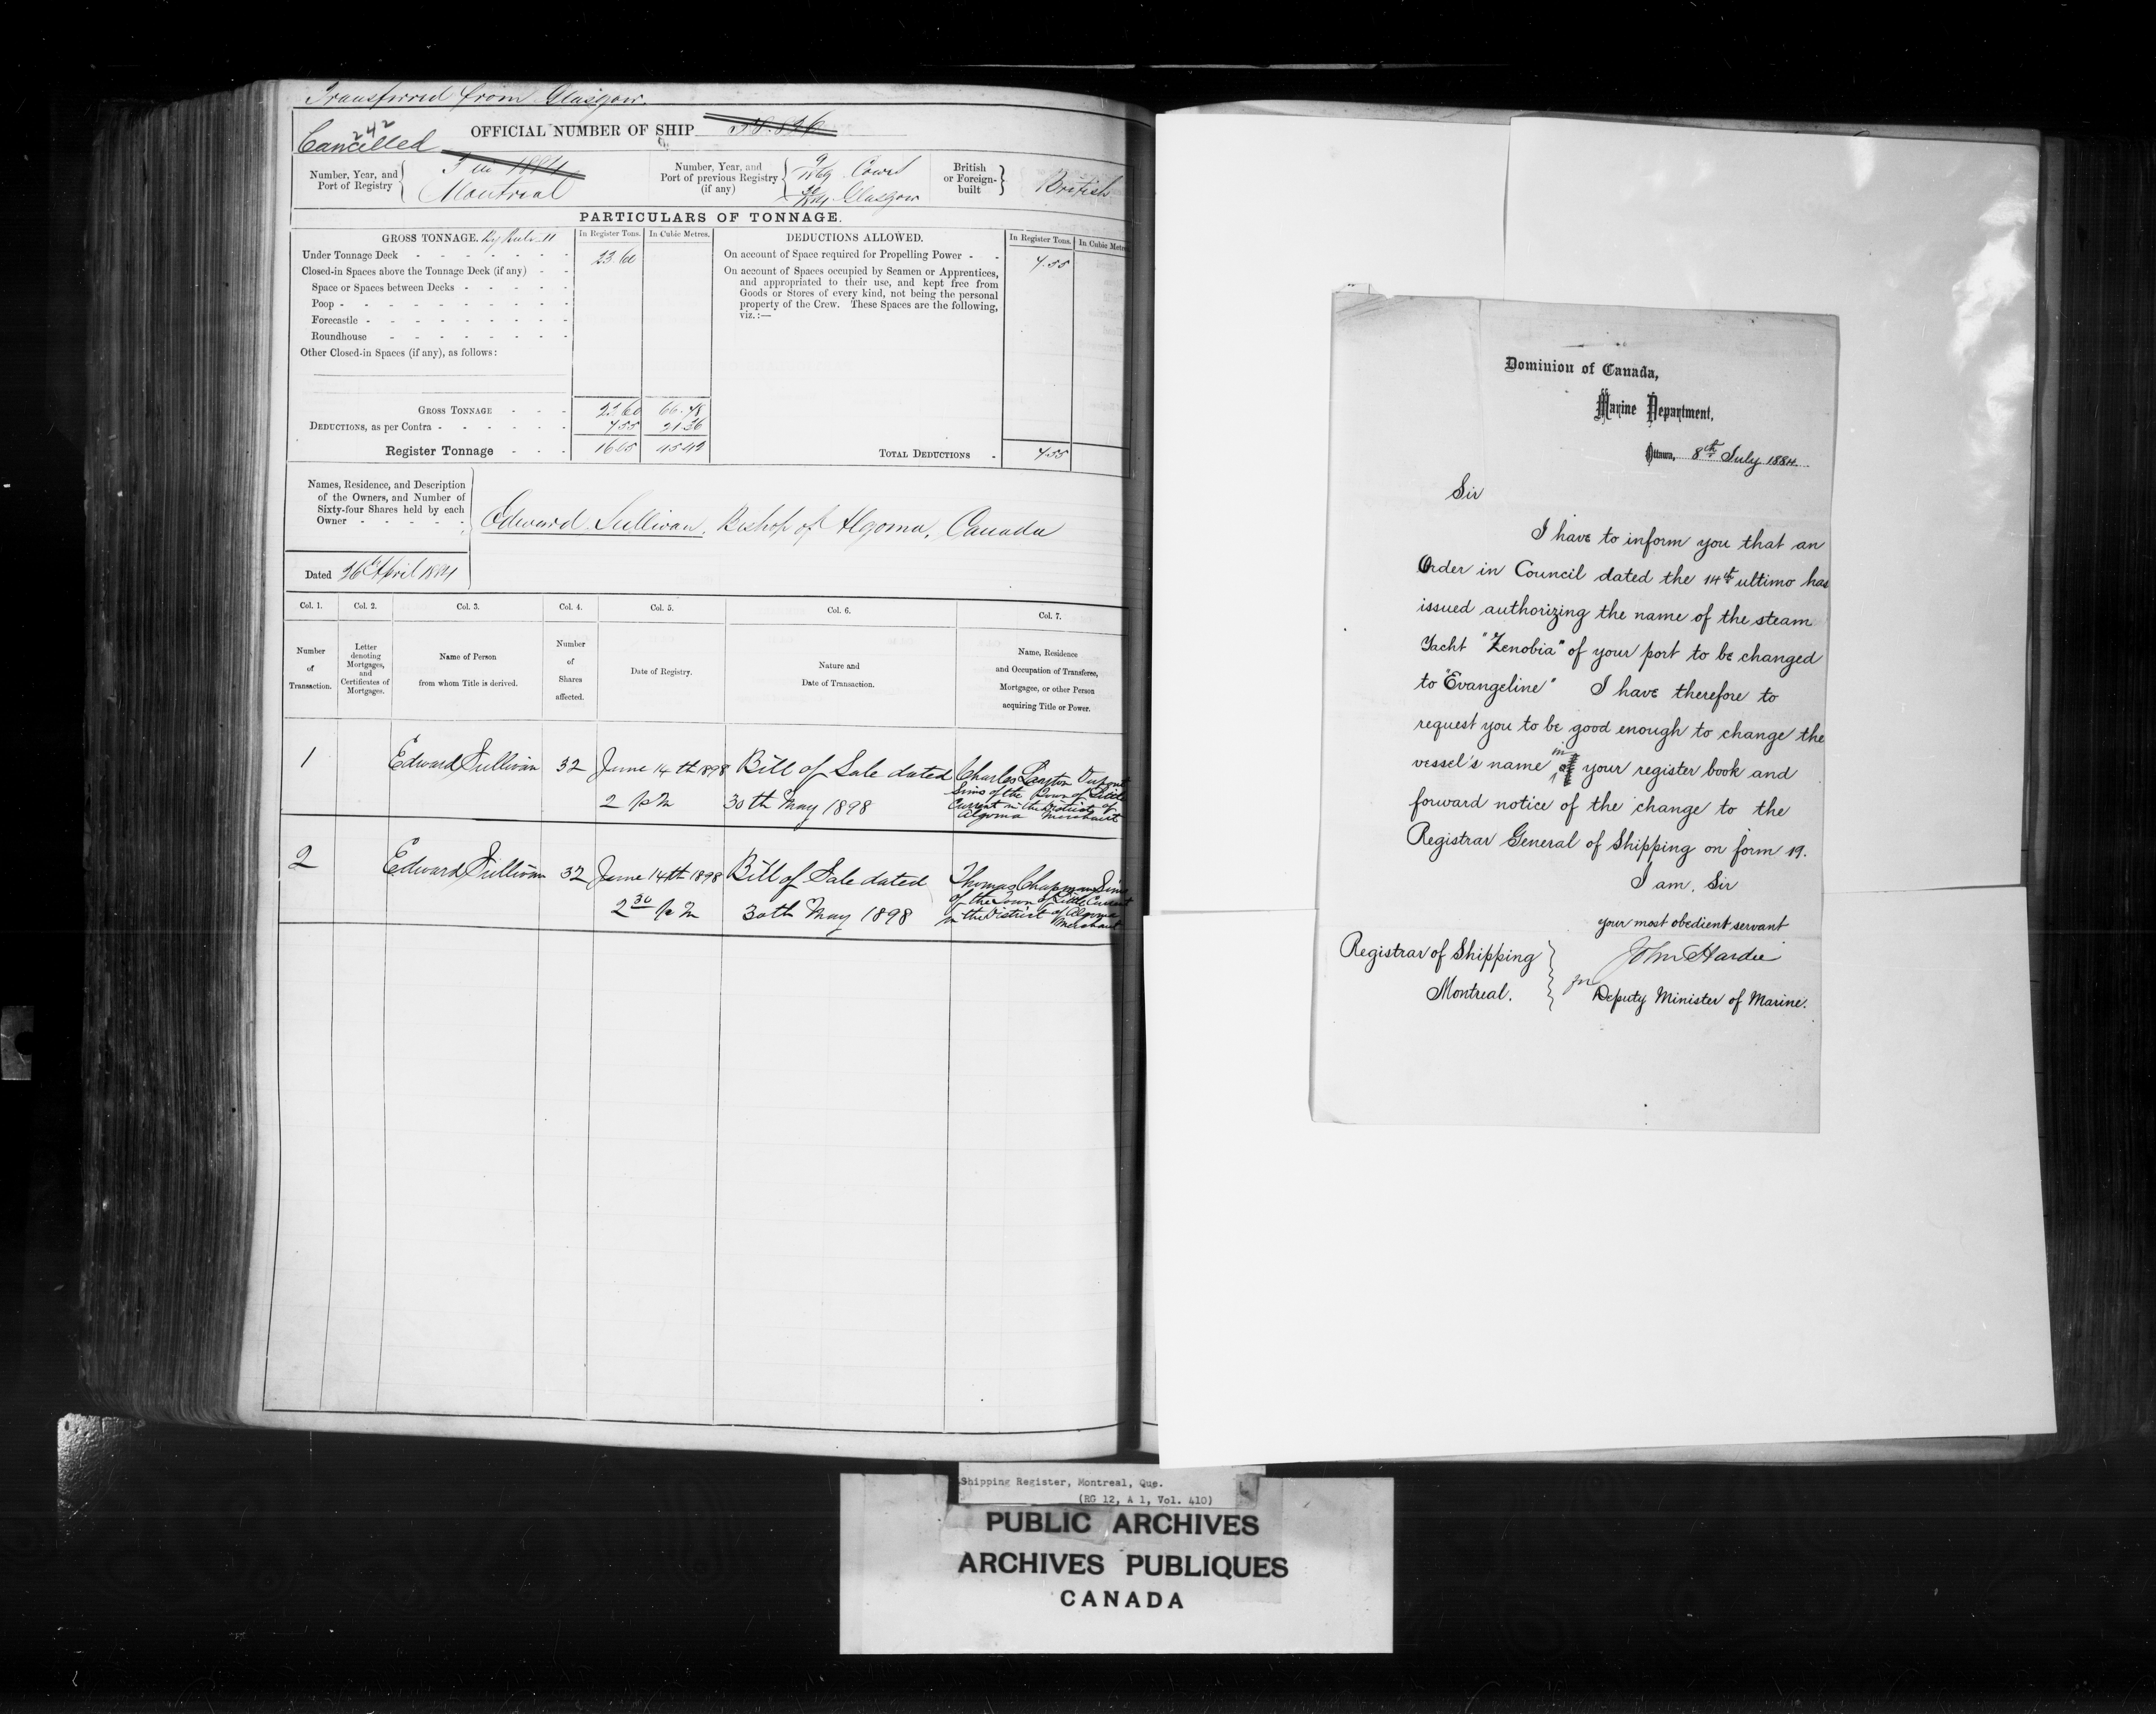 Transferred from Glasgow.
242
Cancelled
OFFICIAL NUMBER OF SHIP
Number, Year, and
Port of Registry
Montreal
Number, Year, and
Port of previous Registry
(if any)
Cowes
Glasgow
British
or Foreign-
built
British
PARTICULARS OF TONNAGE.
GROSS TONNAGE. By Rule II
In Register Tons. In Cubic Metres.
Under Tonnage Deck 23.60
Closed-in Spaces above the Tonnage Deck (if any)
Space or Spaces between Decks
Poop
Forecastle
Roundhouse
Other Closed-in Spaces (if any), as follows:
GROSS TONNAGE 23.60 66.78
DEDUCTIONS, as per Contra 7.55 21.36
Register Tonnage 16.05 45.42
DEDUCTIONS ALLOWED.
In Register Tons. In Cubic Metres
On account of Space required for Propelling Power 7.55
On account of Spaces occupied by Seamen or Apprentices,
and appropriated to their use, and kept free from
Goods or Stores of every kind, not being the personal
property of the Crew. These Spaces are the following,
viz.:—
TOTAL DEDUCTIONS 7.55
Names, Residence, and Description
of the Owners, and Number of
Sixty-four Shares held by each
Owner
Edward Sullivan, Bishop of Algoma, Canada
Dated 26th April 1884
Col. 1. Col. 2. Col. 3. Col. 4. Col. 5. Col. 6. Col. 7.
Number
of
Transaction.
Letter
denoting
Mortgages,
and
Certificates of
Mortgages.
Name of Person
from whom Title is derived.
Number
of
Shares
affected.
Date of Registry.
Nature and
Date of Transaction.
Name, Residence
and Occupation of Transferee,
Mortgagee, or other Person
acquiring Title or Power.
1 Edward Sullivan 32 June 14th 1898 Bill of Sale dated
2 p m 30th May 1898
Charles
Sims of the Town of Little
Current in the District of
Algoma Merchant
2 Edward Sullivan 32 June 14th 1898 Bill of Sale dated
2 30 p m 30th May 1898
Thomas Chapman Sims
of the Town of Little Current
in the District of Algoma
Merchant
Dominion of Canada,
Marine Department,
Ottawa, 8th July 1884
Sir
I have to inform you that an
Order in Council dated the 14th ultimo has
issued authorizing the name of the steam
Yacht "Zenobia" of your port to be changed
to "Evangeline" I have therefore to
request you to be good enough to change the
vessel's name in your register book and
forward notice of the change to the
Registrar General of Shipping on form 19.
I am, Sir
your most obedient servant
John Hardie
for Deputy Minister of Marine.
Registrar of Shipping
Montreal.
Shipping Register, Montreal, Que.
(RG 12, A 1, Vol. 410)
PUBLIC ARCHIVES
ARCHIVES PUBLIQUES
CANADA